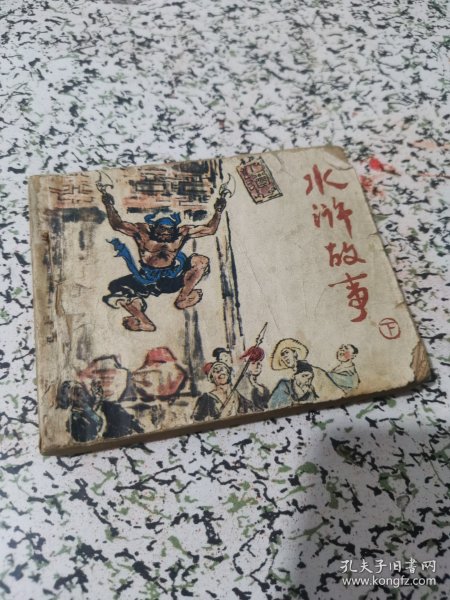 水浒故事
下
孔夫子旧书网
www.kongfz.com